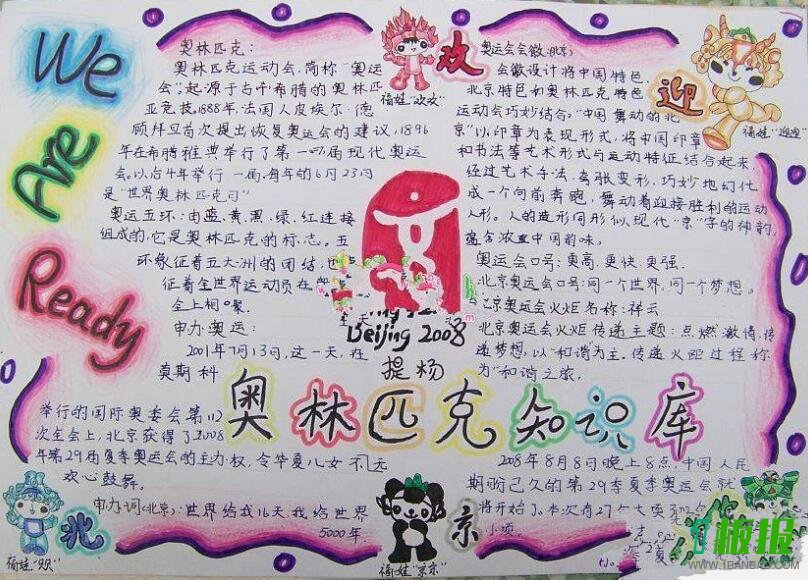 We
Are
Ready
奥林匹克：
奥林匹克运动会，简称“奥运
会”，起源于与千希腊的奥林匹
亚竞技。1888年，法国人皮埃尔·德
顾拜旦首次提出恢复奥运会的建议，1896
年在希腊雅典举行了第一届现代奥运
会，以后十年举行一届，每年的6月23日
是“世界奥林匹克日”
奥运五环：由蓝、黄、黑、绿、红连接
组成的，它是奥林匹克的标志。五
环象征着五大洲的团结，
征着全世界运动员在
全上相聚。
申办奥运：
2001年7月13日，这一天，在
莫斯科
举行的国际奥委会第112
次全会上，北京获得了2008
年第29届夏季奥运会的主办权，令华夏儿女不
欢心鼓舞。
申办词（北京）：世界给我几天，我给世界
5000年
福娃“欢欢”
欢
迎
福娃“迎迎”
奥运会会徽（北京）
会徽设计将中国特色，
北京特色和奥林匹克特色
运动会巧妙结合。“中国舞动的北
京”以印章为表现形式，将中国印章
和书法等艺术形式与运动特征结合起来，
经过艺术手法，夸张变形，巧妙地幻化
成一个向前奔跑，舞动着迎接胜利的运动
人形。人的造形同形似现代“京”字的神韵，
蕴含浓重中国韵味。
奥运会口号：更高，更快，更强.
北京奥运会口号：同一个世界，同一个梦想。
北京奥运会火炬名称：祥云
北京奥运会火炬传递主题：点燃激情，传
递梦想，以“和谐”为主，传递火炬过程称
为“和谐之旅，
Beijing 2008
提杨
奥林匹克知识库
208年8月8日晚上8点，中国人民
期盼已久的第29季夏季奥运会就
将开始了。本次有27个大项302
小项。
福娃“贝贝”
北
福娃“京京”
京
板报
WWW.1BANBAO.COM